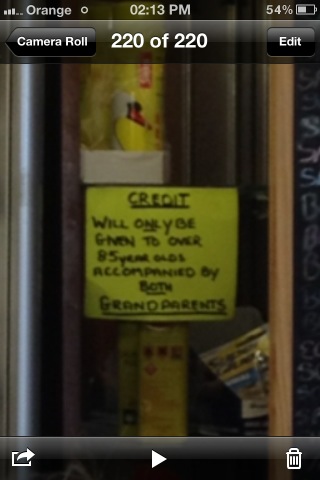 Orange 02:13 PM 54%
Camera Roll 220 of 220 Edit
CREDIT
WILL ONLY BE
GIVEN TO OVER
85 year OLDS
ACCOMPANIED BY
BOTH
GRANDPARENTS